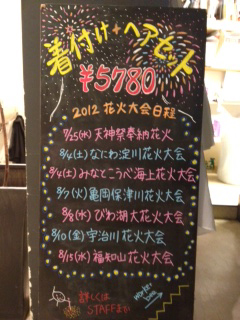 着付け+ヘアセット
¥5780
2012 花火大会日程
7/25(水) 天神祭奉納花火
8/4(土) なにわ淀川花火大会
8/4(土) みなとこうべ海上花火大会
8/7(火) 亀岡保津川花火大会
8/8(水) びわ湖大花火大会
8/10(金) 宇治川花火大会
8/15(水) 福知山花火大会
詳しくは
STAFFまで